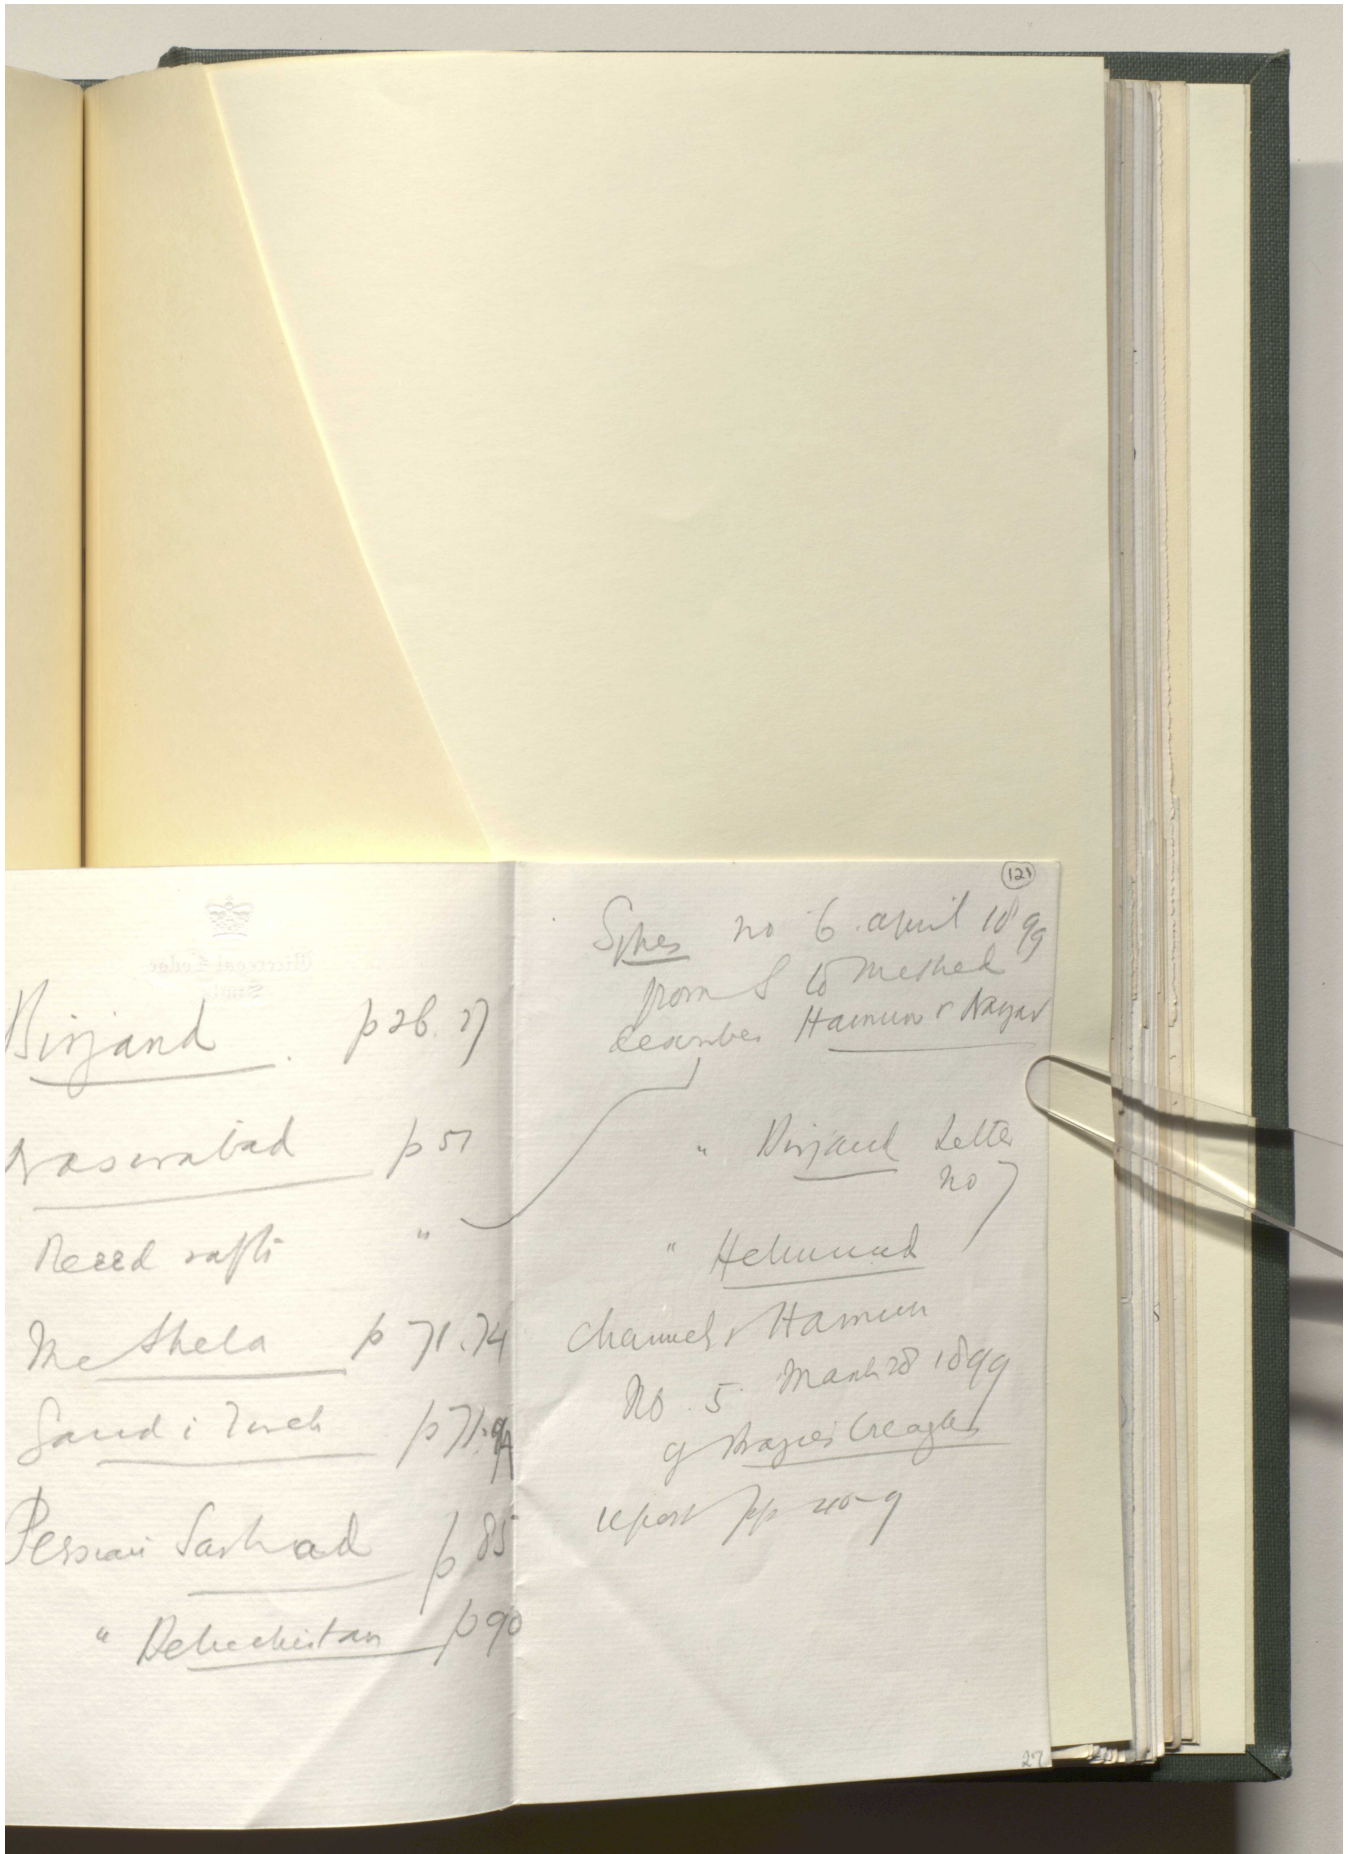 Birjand p 26. 27
Nasirabad p 51
Reed rafts "
The Shela p 71. 74
Gaud i Zireh p 71.
Persian Sarhad p 85
" Beluchistan p 90
121
Sykes no 6 april 1899
from S to Meshed
describes Hamun r
" Birjand Letter
no 7
" Helmund
channels r Hamun
No. 5 March 28 1899
report pp 40-9
27